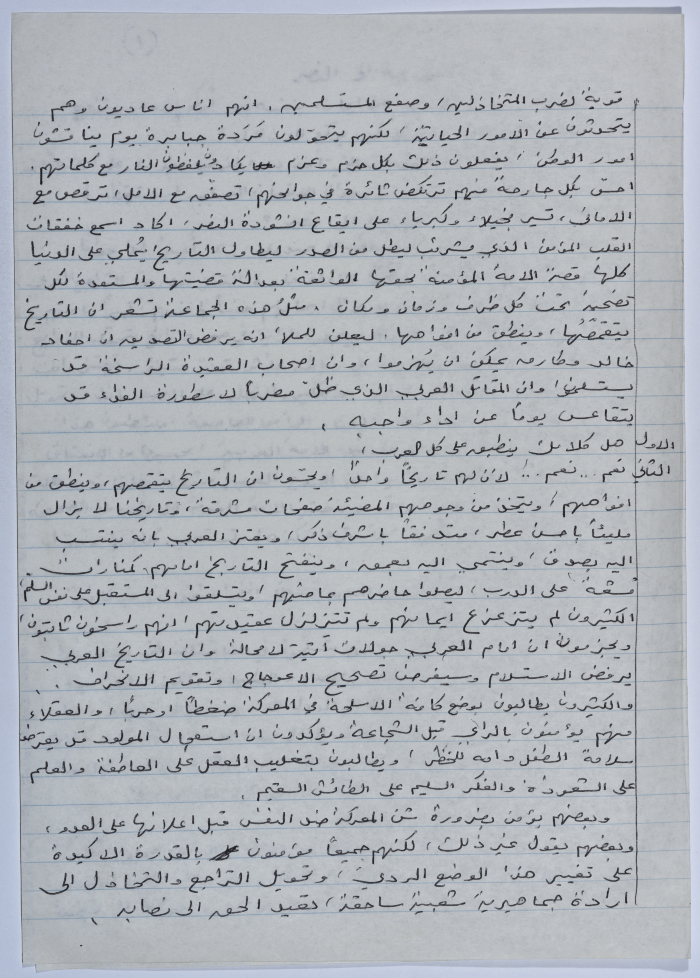 قوية لضرب المتخاذلين، وصفع المستسلمين. انهم اناس عاديون وهم
يتحدثون عن الامور الحياتية، لكنهم يتحولون مَرَدة جبابرة يوم يناقشون
امور الوطن، يفعلون ذلك بكل حزم وعزم يكادون يلفظون النار مع كلماتهم.
احسّ بكل جارحة منهم ترتكض ثائرة في جوانحهم، تصفّق مع الامل، ترقص مع
الاماني، تسير بخيلاء وكبرياء على ايقاع انشودة النصر، اكاد اسمع خفقات
القلب المؤمن الذي يشرئب ليطل من الصدر ليطاول التاريخ، يُملي على الدنيا
كلها قصة الامة المؤمنة بحقها الواثقة بعدالة قضيتها والمستعدة لكل
تضحية تحت كل ظرف وزمان ومكان. مثل هذه الجماعة تشعر ان التاريخ
يتقمّصُها، وينطق من افواهها. ليعلن للملأ انه يرفض التصديق ان احفاد
خالد وطارق يمكن ان يُهزموا، وان اصحاب العقيدة الراسخة قد
يستسلموا وان المقاتل العربي الذي ظلّ مضرباً لاسطورة الفداء قد
يتقاعس يوماً عن اداء واجبه.
الاول هل كلامك ينطبق على كل العرب؟
الثاني نعم .. نعم ..! لان لهم تاريخاً واحداً، ويحسّون ان التاريخ يتقمصهم، وينطق من
افواههم، ويتخذ من وجوههم المضيئة صفحات مشرقة، وتاريخنا لا يزال
مليئاً باحسن عطر، متدفقاً باشرف ذكر، ويعتز العربي بانه ينتسب
اليه بصدق، وينتمي اليه بعمق، وينفتح التاريخ امامهم كمنارات
مشعة على الدرب، ليصلوا حاضرهم بماضيهم، ويتسلقوا الى المستقبل على نفس السلم،
الكثيرون لم يتزعزع ايمانهم ولم تتزلزل عقيدتهم، انهم راسخون ثابتون،
ويجزمون ان امام العربي جولات آتية لا محالة وان التاريخ العربي
يرفض الاستسلام وسيفرض تصحيح الاعوجاج، وتقويم الانحراف.
والكثيرون يطالبون بوضع كافة الاسلحة في المعركة ضغطاً او حرباً، والعقلاء
منهم يؤمنون بالرأي قبل الشجاعة ويؤكدون ان استعجال المولود قد يعرّض
سلامة الطفل وامه للخطر، ويطالبون بتغليب العقل على العاطفة والعلم
على الشعوذة والفكر السليم على الطائش السقيم.
وبعضهم يؤمن بضرورة شن المعركة ضد النفس قبل اعلانها على العدو،
وبعضهم يقول غير ذلك، لكنهم جميعاً مؤمنون بالقدرة الاكيدة
على تغيير هذا الوضع الرديء، وتحويل التراجع والتخاذل الى
ارادة جماهيرية شعبية ساحقة، تعيد الحق الى نصابه.